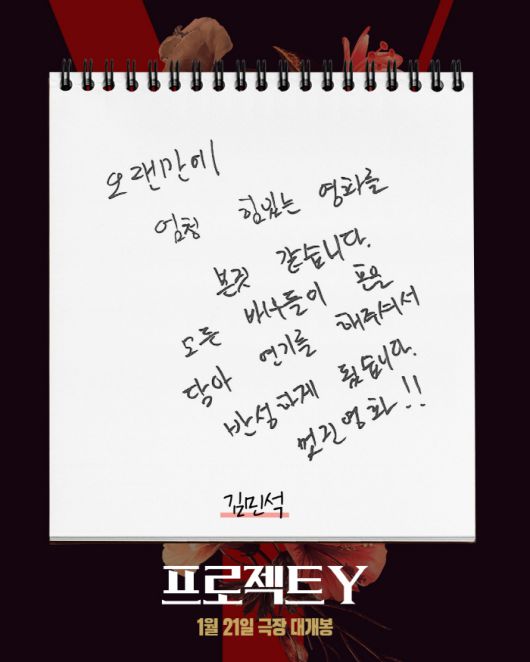 오랜만에
엄청 힘있는 영화를
본것 같습니다.
모든 배우들이 혼을
담아 연기를 해주셔서
반성하게 됬습니다.
멋진영화!!
김민석
프로젝트 Y
1월 21일 극장 대개봉